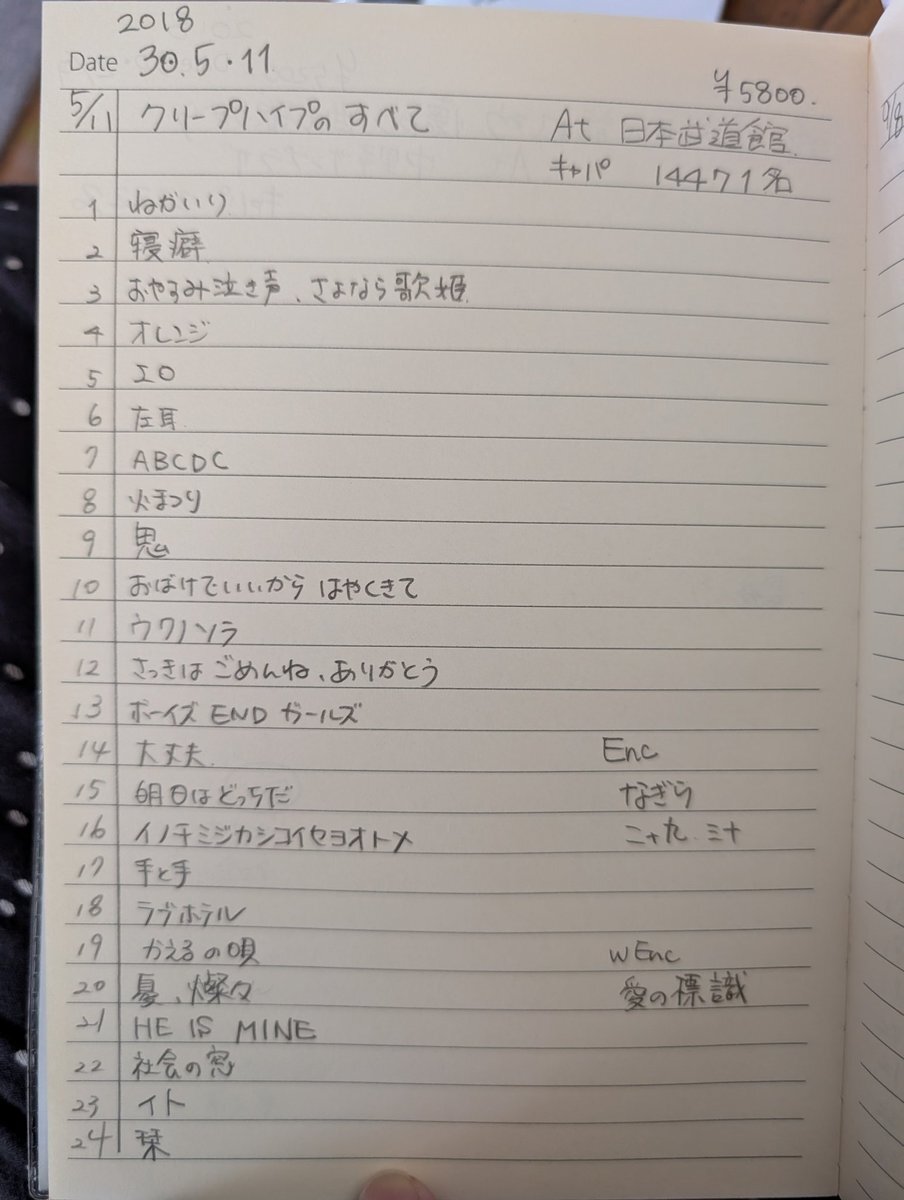 2018
Date 30.5.11
¥5800.
5/11 クリープハイプのすべて At 日本武道館
キャパ 14471名
1 ねがいり
2 寝癖
3 おやすみ泣き声、さよなら歌姫
4 オレンジ
5 エロ
6 左耳
7 ABCDC
8 火まつり
9 鬼
10 おばけでいいからはやくきて
11 ウワノソラ
12 さっきはごめんね、ありがとう
13 ボーイズENDガールズ
14 大丈夫 Enc
15 明日はどっちだ なぎら
16 イノチミジカシコイセヨオトメ 二十九、三十
17 手と手
18 ラブホテル
19 かえるの唄 wEnc
20 憂、燦々 愛の標識
21 HE IS MINE
22 社会の窓
23 イト
24 栞